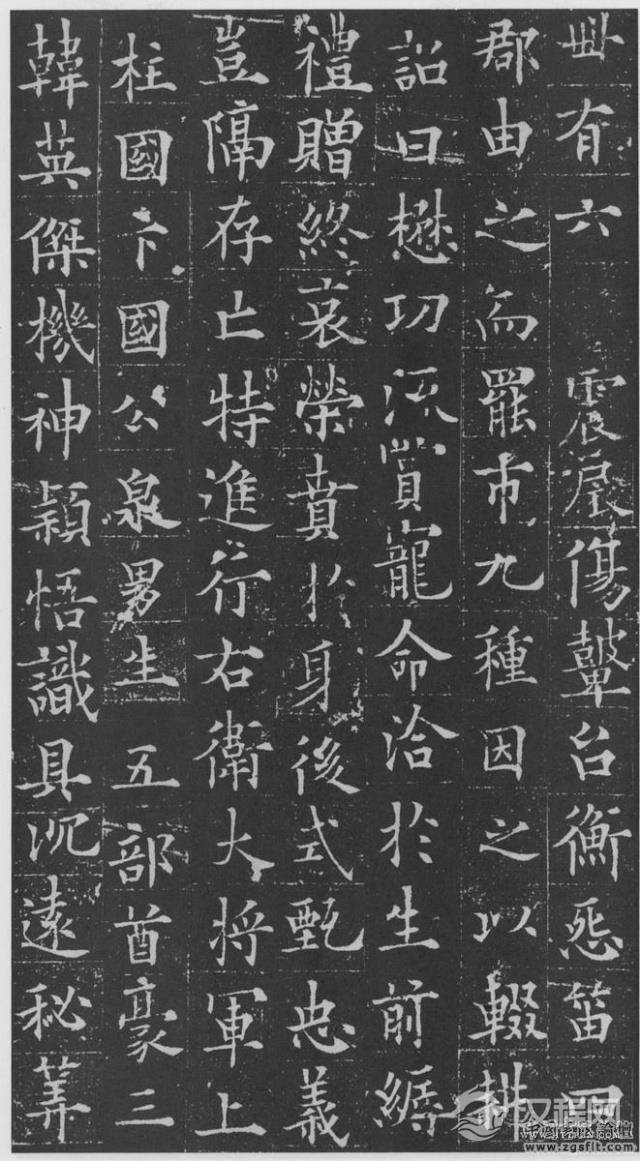 卌有六　震宸傷鼙台衡怨笛四
郡由之而罷市九種因之以輟耕
詔曰懋功流賞寵命洽於生前縟
禮贈終哀榮賁於身後式甄忠義
豈隔存亡特進行右衛大將軍上
柱國卞國公泉男生　五部酋豪三
韓英傑機神穎悟識具沉遠秘筭
汉程网
www.zgsflt.com